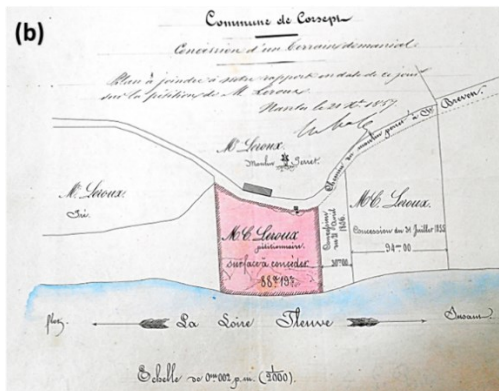 (b)
Commune de Corsept
Concession d'un terrain domanial
Plan à joindre à notre rapport en date de ce jour
sur la pétition de M. Leroux
Nantes le 21 Xbre 1857
Mr Leroux.
Moulin Perret
Chemin du moulin perret à St Breven
Mr Leroux.
Pré.
M.C. Leroux
pétitionnaire
surface à concéder
88a 19c
Concession du 21 Avril 1856.
20m00
M.C. Leroux
Concession du 31 Juillet 1852
94m00
flot. La Loire Fleuve Jusant
Echelle de 0m002 p.m. (1/5000)